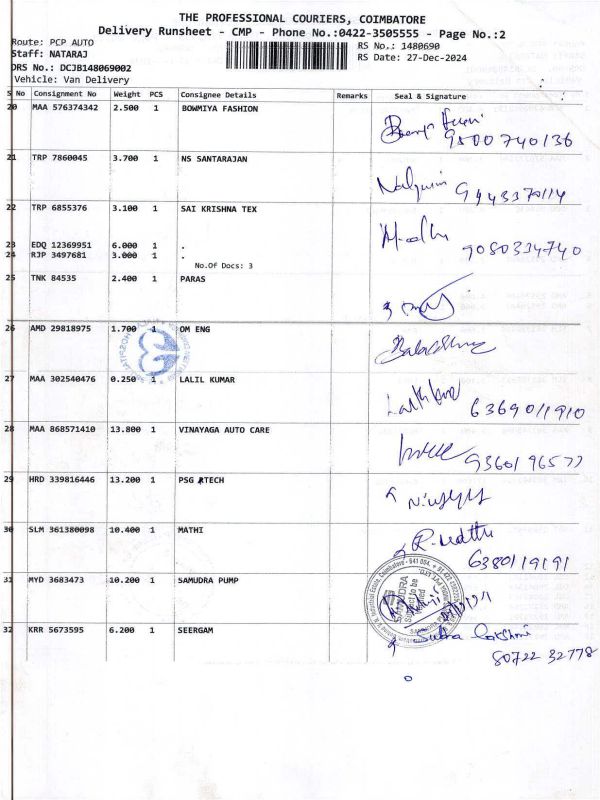 THE PROFESSIONAL COURIERS, COIMBATORE
Delivery Runsheet - CMP - Phone No.:0422-3505555 - Page No.:2
Route: PCP AUTO
Staff: NATARAJ
DRS No.: DCJB148069002
Vehicle: Van Delivery
RS No.: 1480690
RS Date: 27-Dec-2024
S No Consignment No Weight PCS Consignee Details Remarks Seal & Signature
20 MAA 576374342 2.500 1 BOWMIYA FASHION
9500740136
21 TRP 7860045 3.700 1 NS SANTARAJAN
22 TRP 6855376 3.100 1 SAI KRISHNA TEX
9080334740
23 EDQ 12369951 6.000 1 .
24 RJP 3497681 3.000 1 .
No.Of Docs: 3
25 TNK 84535 2.400 1 PARAS
26 AMD 29818975 1.700 1 OM ENG
27 MAA 302540476 0.250 1 LALIL KUMAR
6369011910
28 MAA 868571410 13.800 1 VINAYAGA AUTO CARE
9360196577
29 HRD 339816446 13.200 1 PSG RTECH
30 SLM 361380098 10.400 1 MATHI
6380119191
31 MYD 3683473 10.200 1 SAMUDRA PUMP
SAMUDRA
32 KRR 5673595 6.200 1 SEERGAM
80722 32778